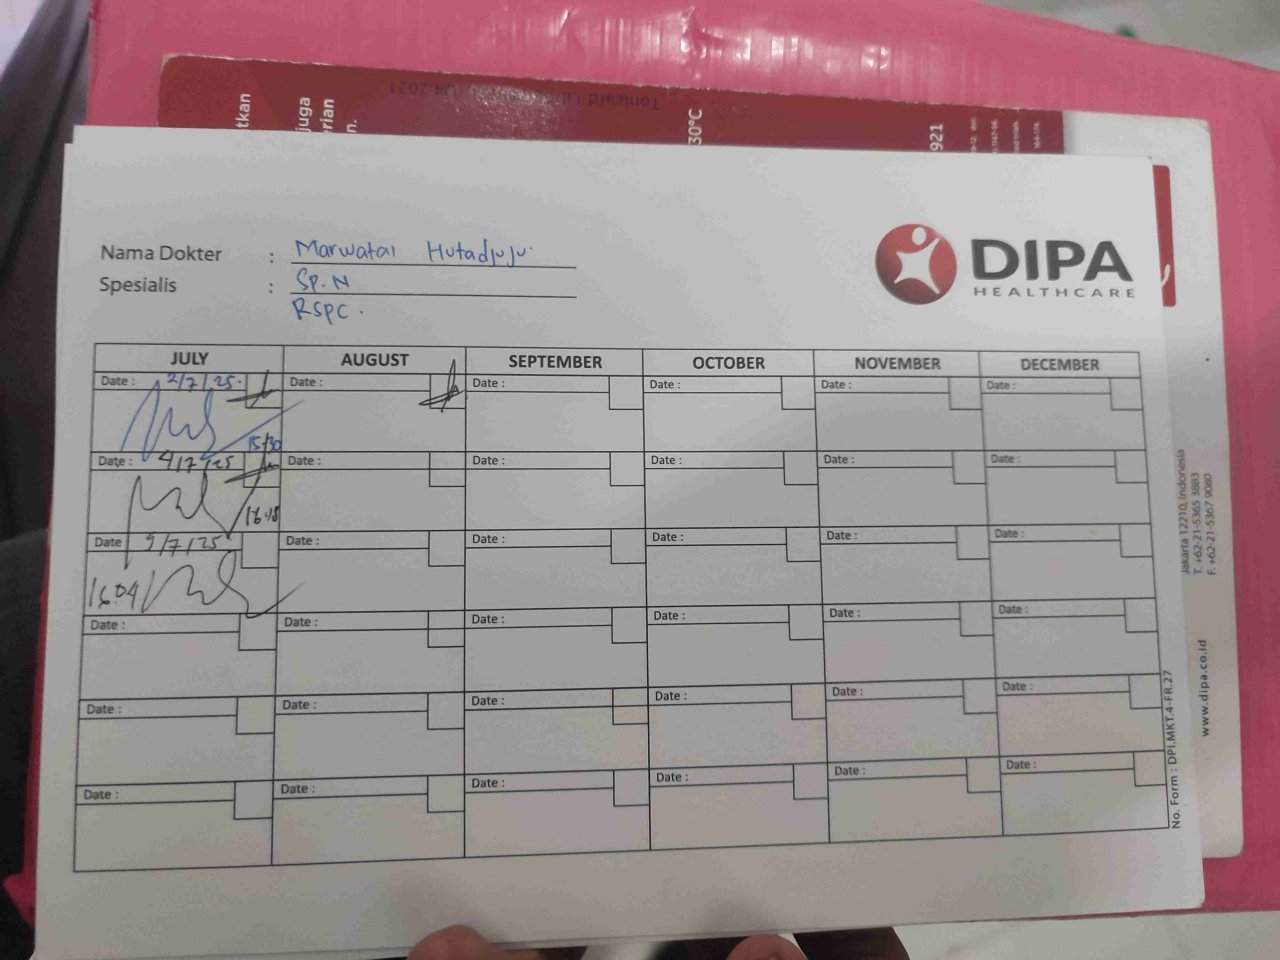 tkan
juga
rian
n.
30°C
921
Nama Dokter : Marwatal Hutadjuju
Spesialis : Sp.N
RSPC.
DIPA
HEALTHCARE
JULY AUGUST SEPTEMBER OCTOBER NOVEMBER DECEMBER
Date : 2/7/25. Date : Date : Date : Date : Date :
15/30
Date : 4/7/25 Date : Date : Date : Date : Date :
16.18
Date 9/7/25 Date : Date : Date : Date : Date :
16.04
Date : Date : Date : Date : Date : Date :
Date : Date : Date : Date : Date : Date :
Date : Date : Date : Date : Date : Date :
No. Form : DPI.MKT.4-FR.27
Jakarta 12210, Indonesia
T. +62-21-5365 3883
F. +62-21-5367 9080
www.dipa.co.id